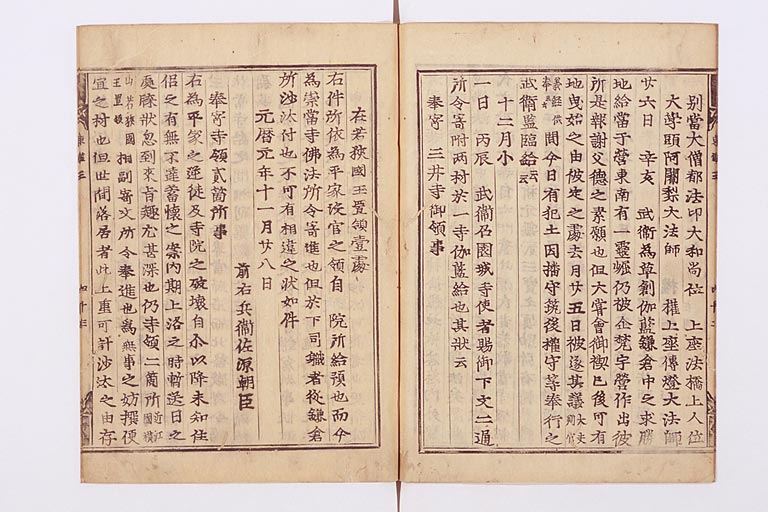 別當大僧都法印大和尚位 上座法橋上人位
大學頭阿闍梨大法師 權上座傳燈大法師
廿六日 辛亥 武衛為草創伽藍鎌倉中之求勝
地給當于營東南有一靈崛仍被企梵宇營作出彼
所是報謝父德之素願也但大嘗會御禊已後可有
地曳始之由被定之處去月廿五日被遂其議
間今日有犯土因播守筑後權守等奉行之
武衛監臨給云
十二月小
一日 丙辰 武衛召園城寺使者賜御下文二通
所令寄附两村於一寺伽藍給也其狀云
奉寄 三井寺御領事
在若狹國玉置領壹處
右件所依為平家沒官之領自 院所給預也而今
為崇當寺佛法所令寄進也但於下司職者從鎌倉
所沙汰付也不可有相違之狀如件
元暦元年十一月廿八日
前右兵衛佐源朝臣
奉寄寺領貳箇所事
右為平家之逆徒及寺院之破壞自尒以降未知住
侶之有無不達蓄懷之案內期上洛之時暫送日之
處牒狀忽到來旨趣尤甚深也仍寺領二箇所近江國橫
山若狹國玉置領相副寄文所令奉進也為無事之妨撰便
宜之村也但世間落居者此上重可計沙汰之由存